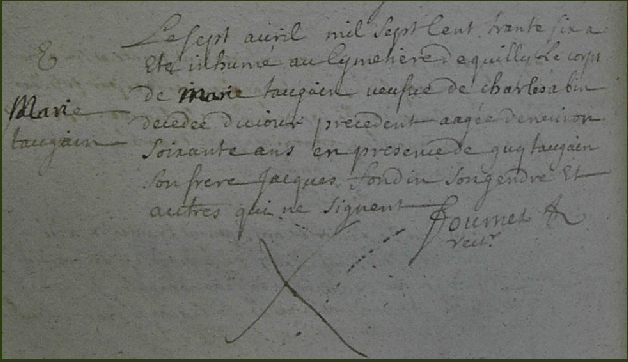 Le sept avril mil sept cent trante six a
Eté inhumé au Cymetiere de quilly Le corps
de Marie taugain veufve de charles abin
decedée du iour precedent aagée denviron
soixante ans en presence de guy taugain
son frere Jacques fondin son gendre Et
autres qui ne signent
Marie
taugain
fournet
rectr